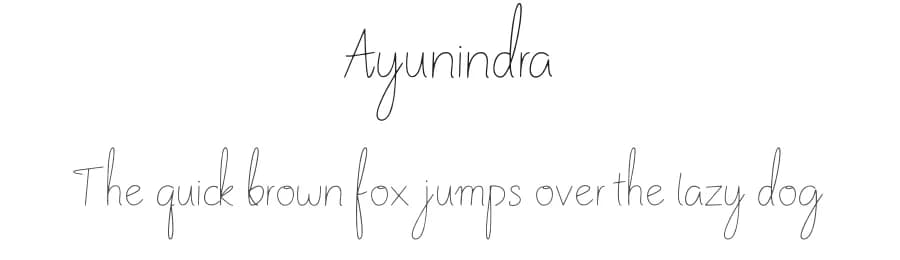 Ayunindra
The quick brown fox jumps over the lazy dog